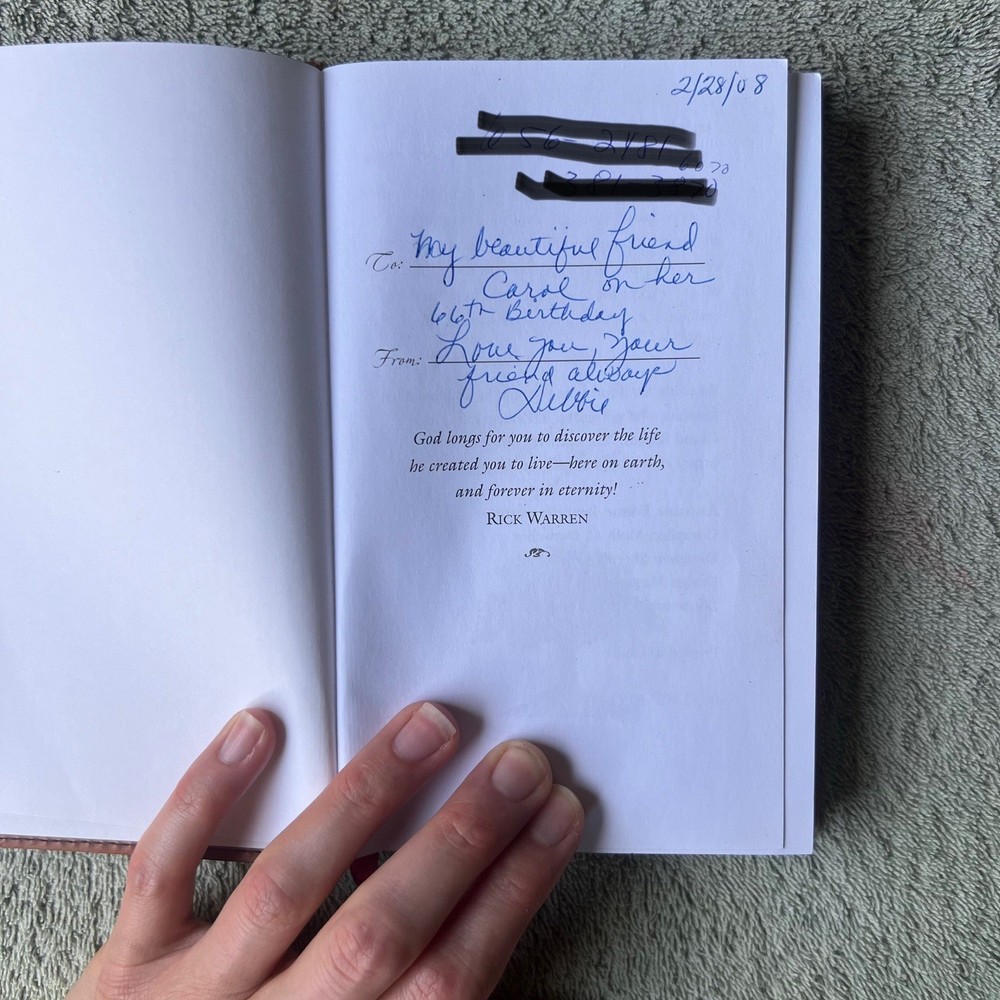 2/28/08
To: My beautiful friend
Carol on her
66th Birthday
From: Love you, Your
friend always
Debbie
God longs for you to discover the life
he created you to live—here on earth,
and forever in eternity!
RICK WARREN